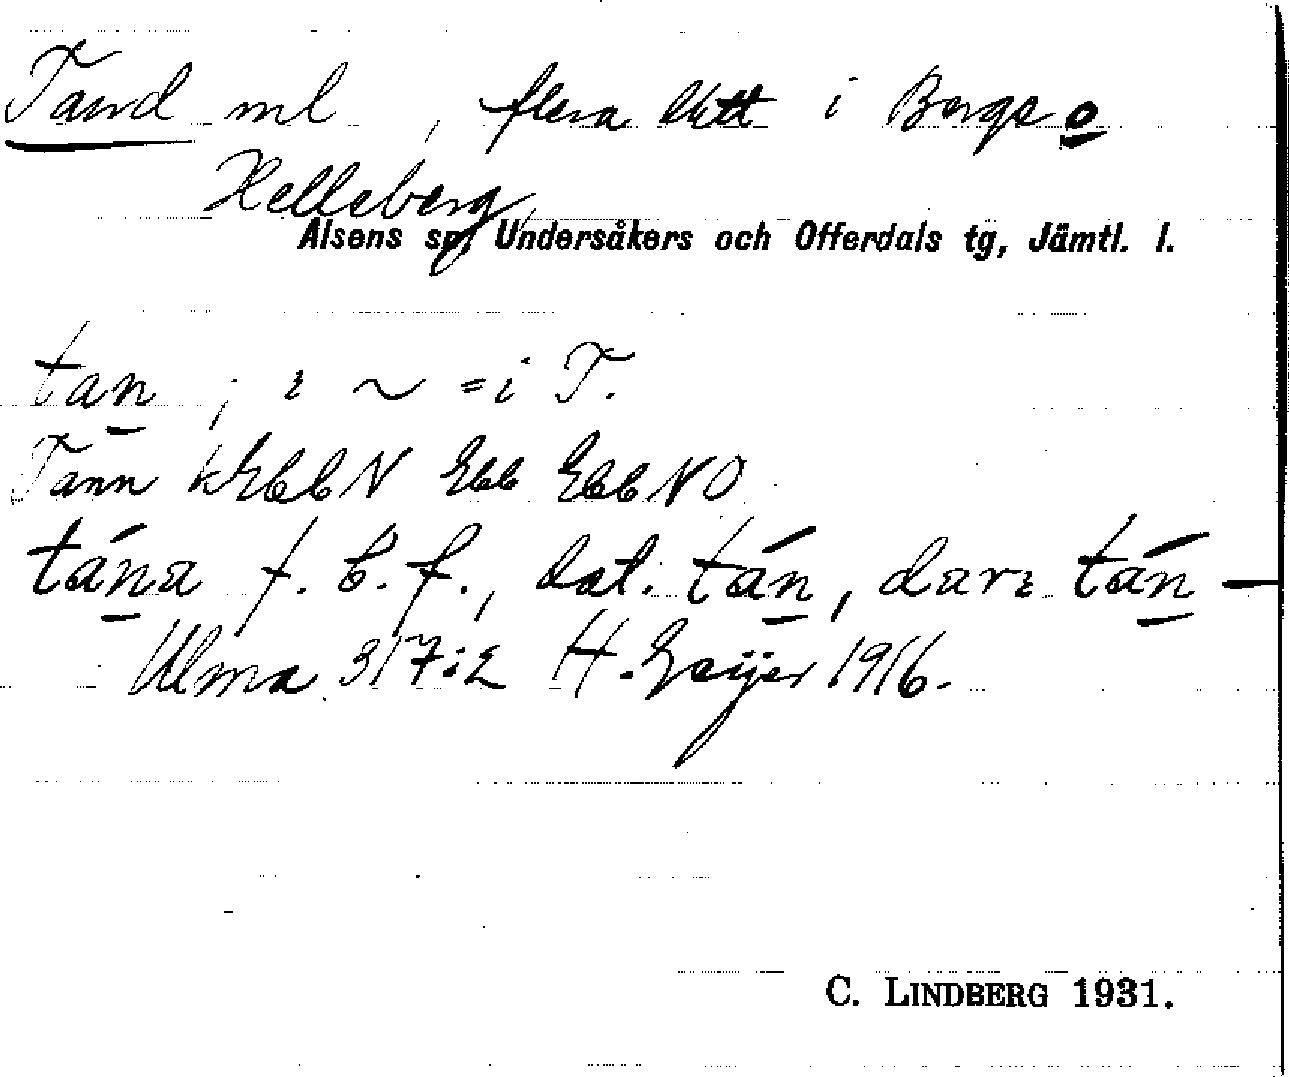 Tand ml , flera lutt i Bergs o
Helleberg,
Alsens sn, Undersåkers och Offerdals tg, Jämtl. l.
tan , i ~ = i T.
Tann kEbbN Ebb EbbNO
tána f. b. f., dat. tán, darı tán –
Ulma 317:2 H. Geijer 1916.
C. LINDBERG 1931.